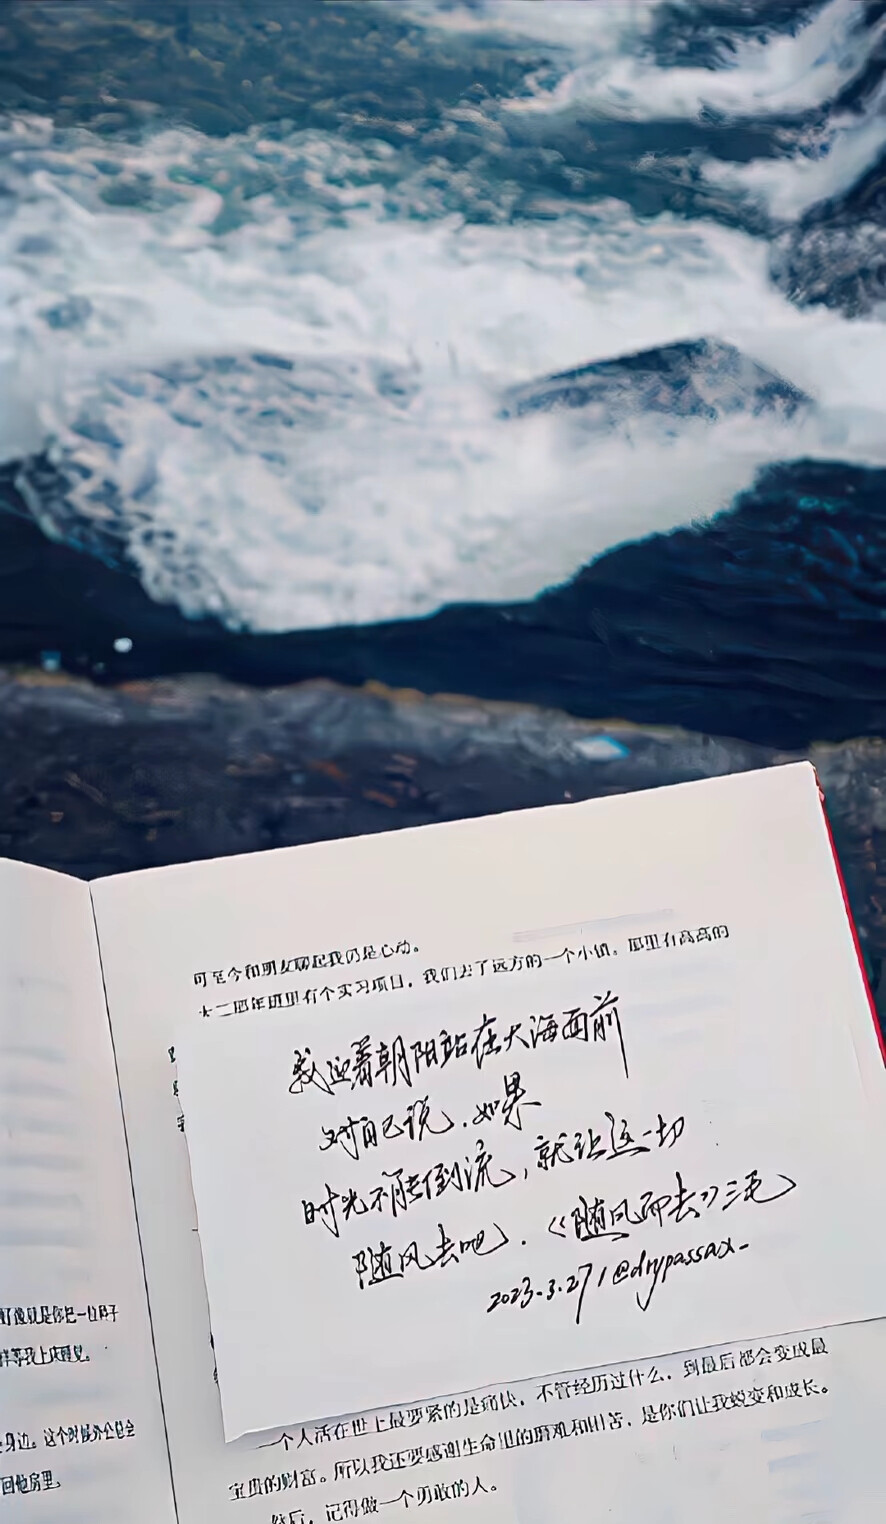 可至今和朋友聊起我仍是心动。
大二那年班里有个实习项目，我们去了远方的一个小镇。那里有高高的
我迎着朝阳站在大海面前
对自己说．如果
时光不能倒流，就让这一切
随风去吧．《随风而去》三毛
2023.3.27/@drypassax-
一个人活在世上最要紧的是痛快，不管经历过什么，到最后都会变成最
宝贵的财富。所以我还要感谢生命里的磨难和困苦，是你们让我蜕变和成长。
然后，记得做一个勇敢的人。
就是你把一位
等我上床睡觉。
身边。这个时候外公总会
回他房里。